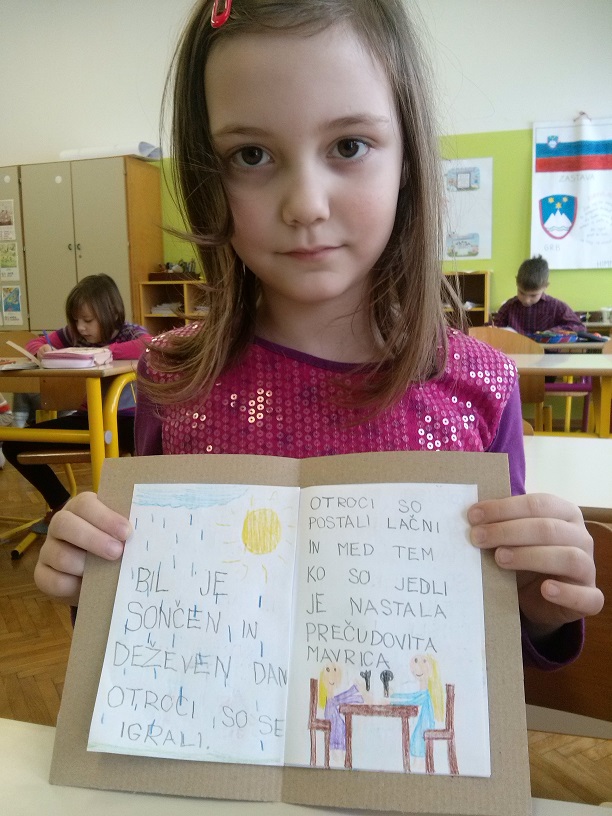 BIL JE
SONČEN IN
DEŽEVEN DAN
OTROCI SO SE
IGRALI.
OTROCI SO
POSTALI LAČNI
IN MED TEM
KO SO JEDLI
JE NASTALA
PREČUDOVITA
MAVRICA
ZASTAVA
GRB